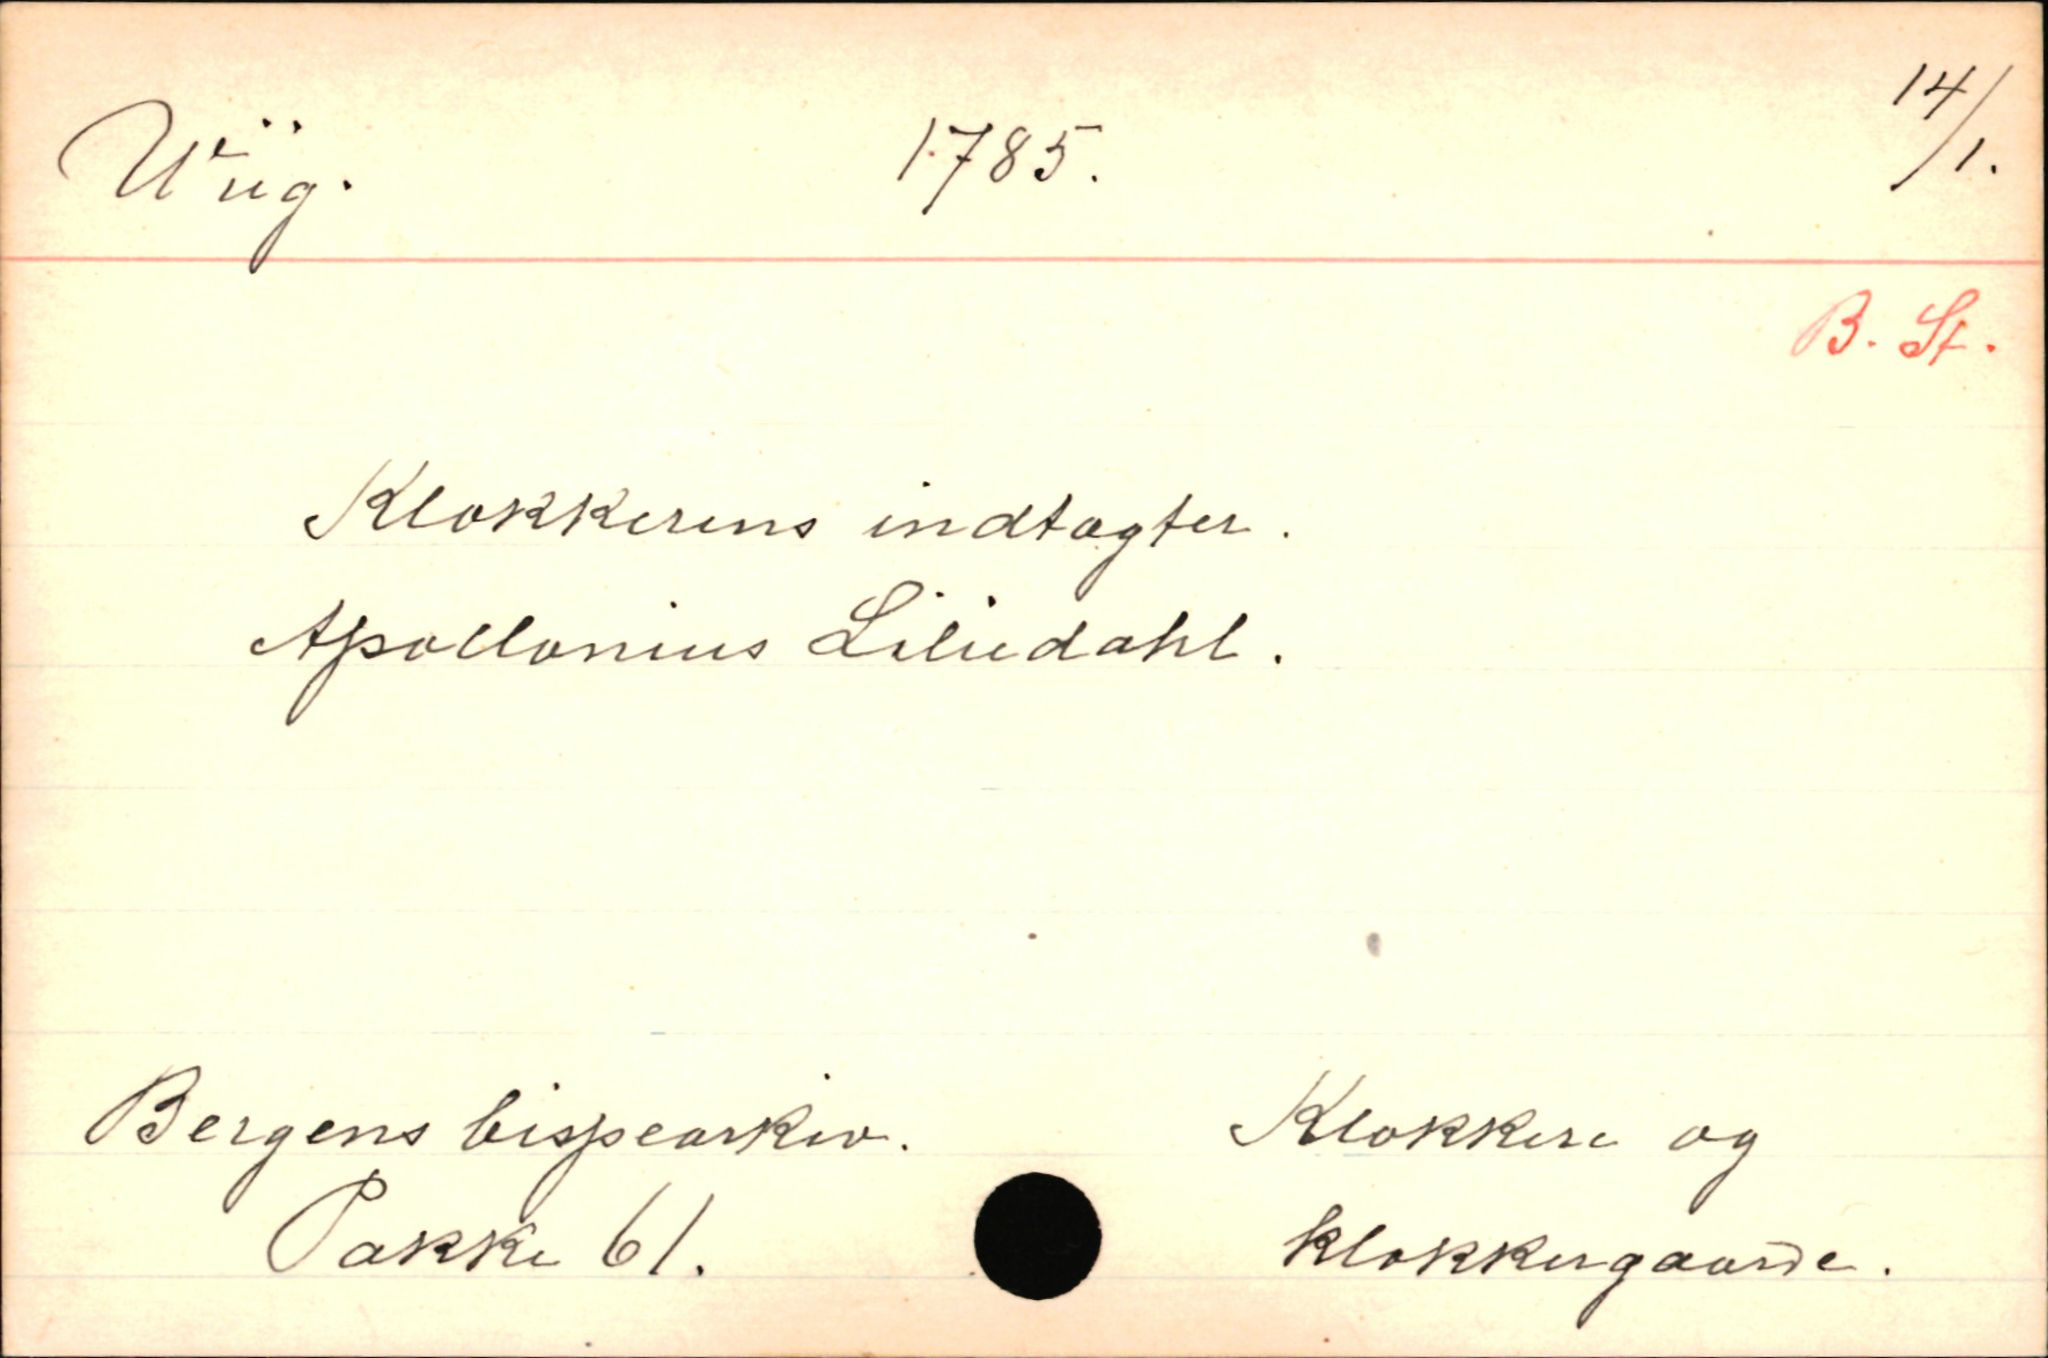 Wiig. 1785. 14/1.
B. St.
Klokkerens indtægter.
Apollonius Liliedahl.
Bergens bispearkiv. Klokkere og
Pakke 61. klokkergaarde.